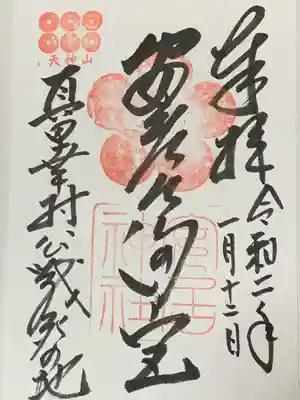 奉拝
令和二年
一月十二日
安居天満宮
安居神社
天神山
真田幸村公の地